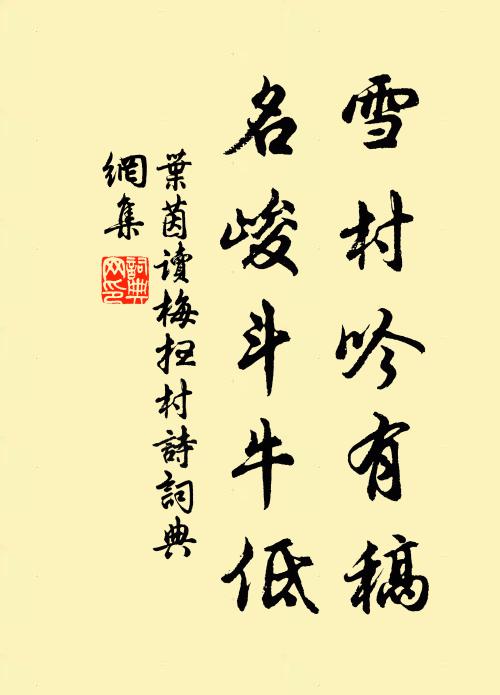 雪村吟有稿
名峻斗牛低
葉茵讀梅拒村詩詞典
網集
詞典網印